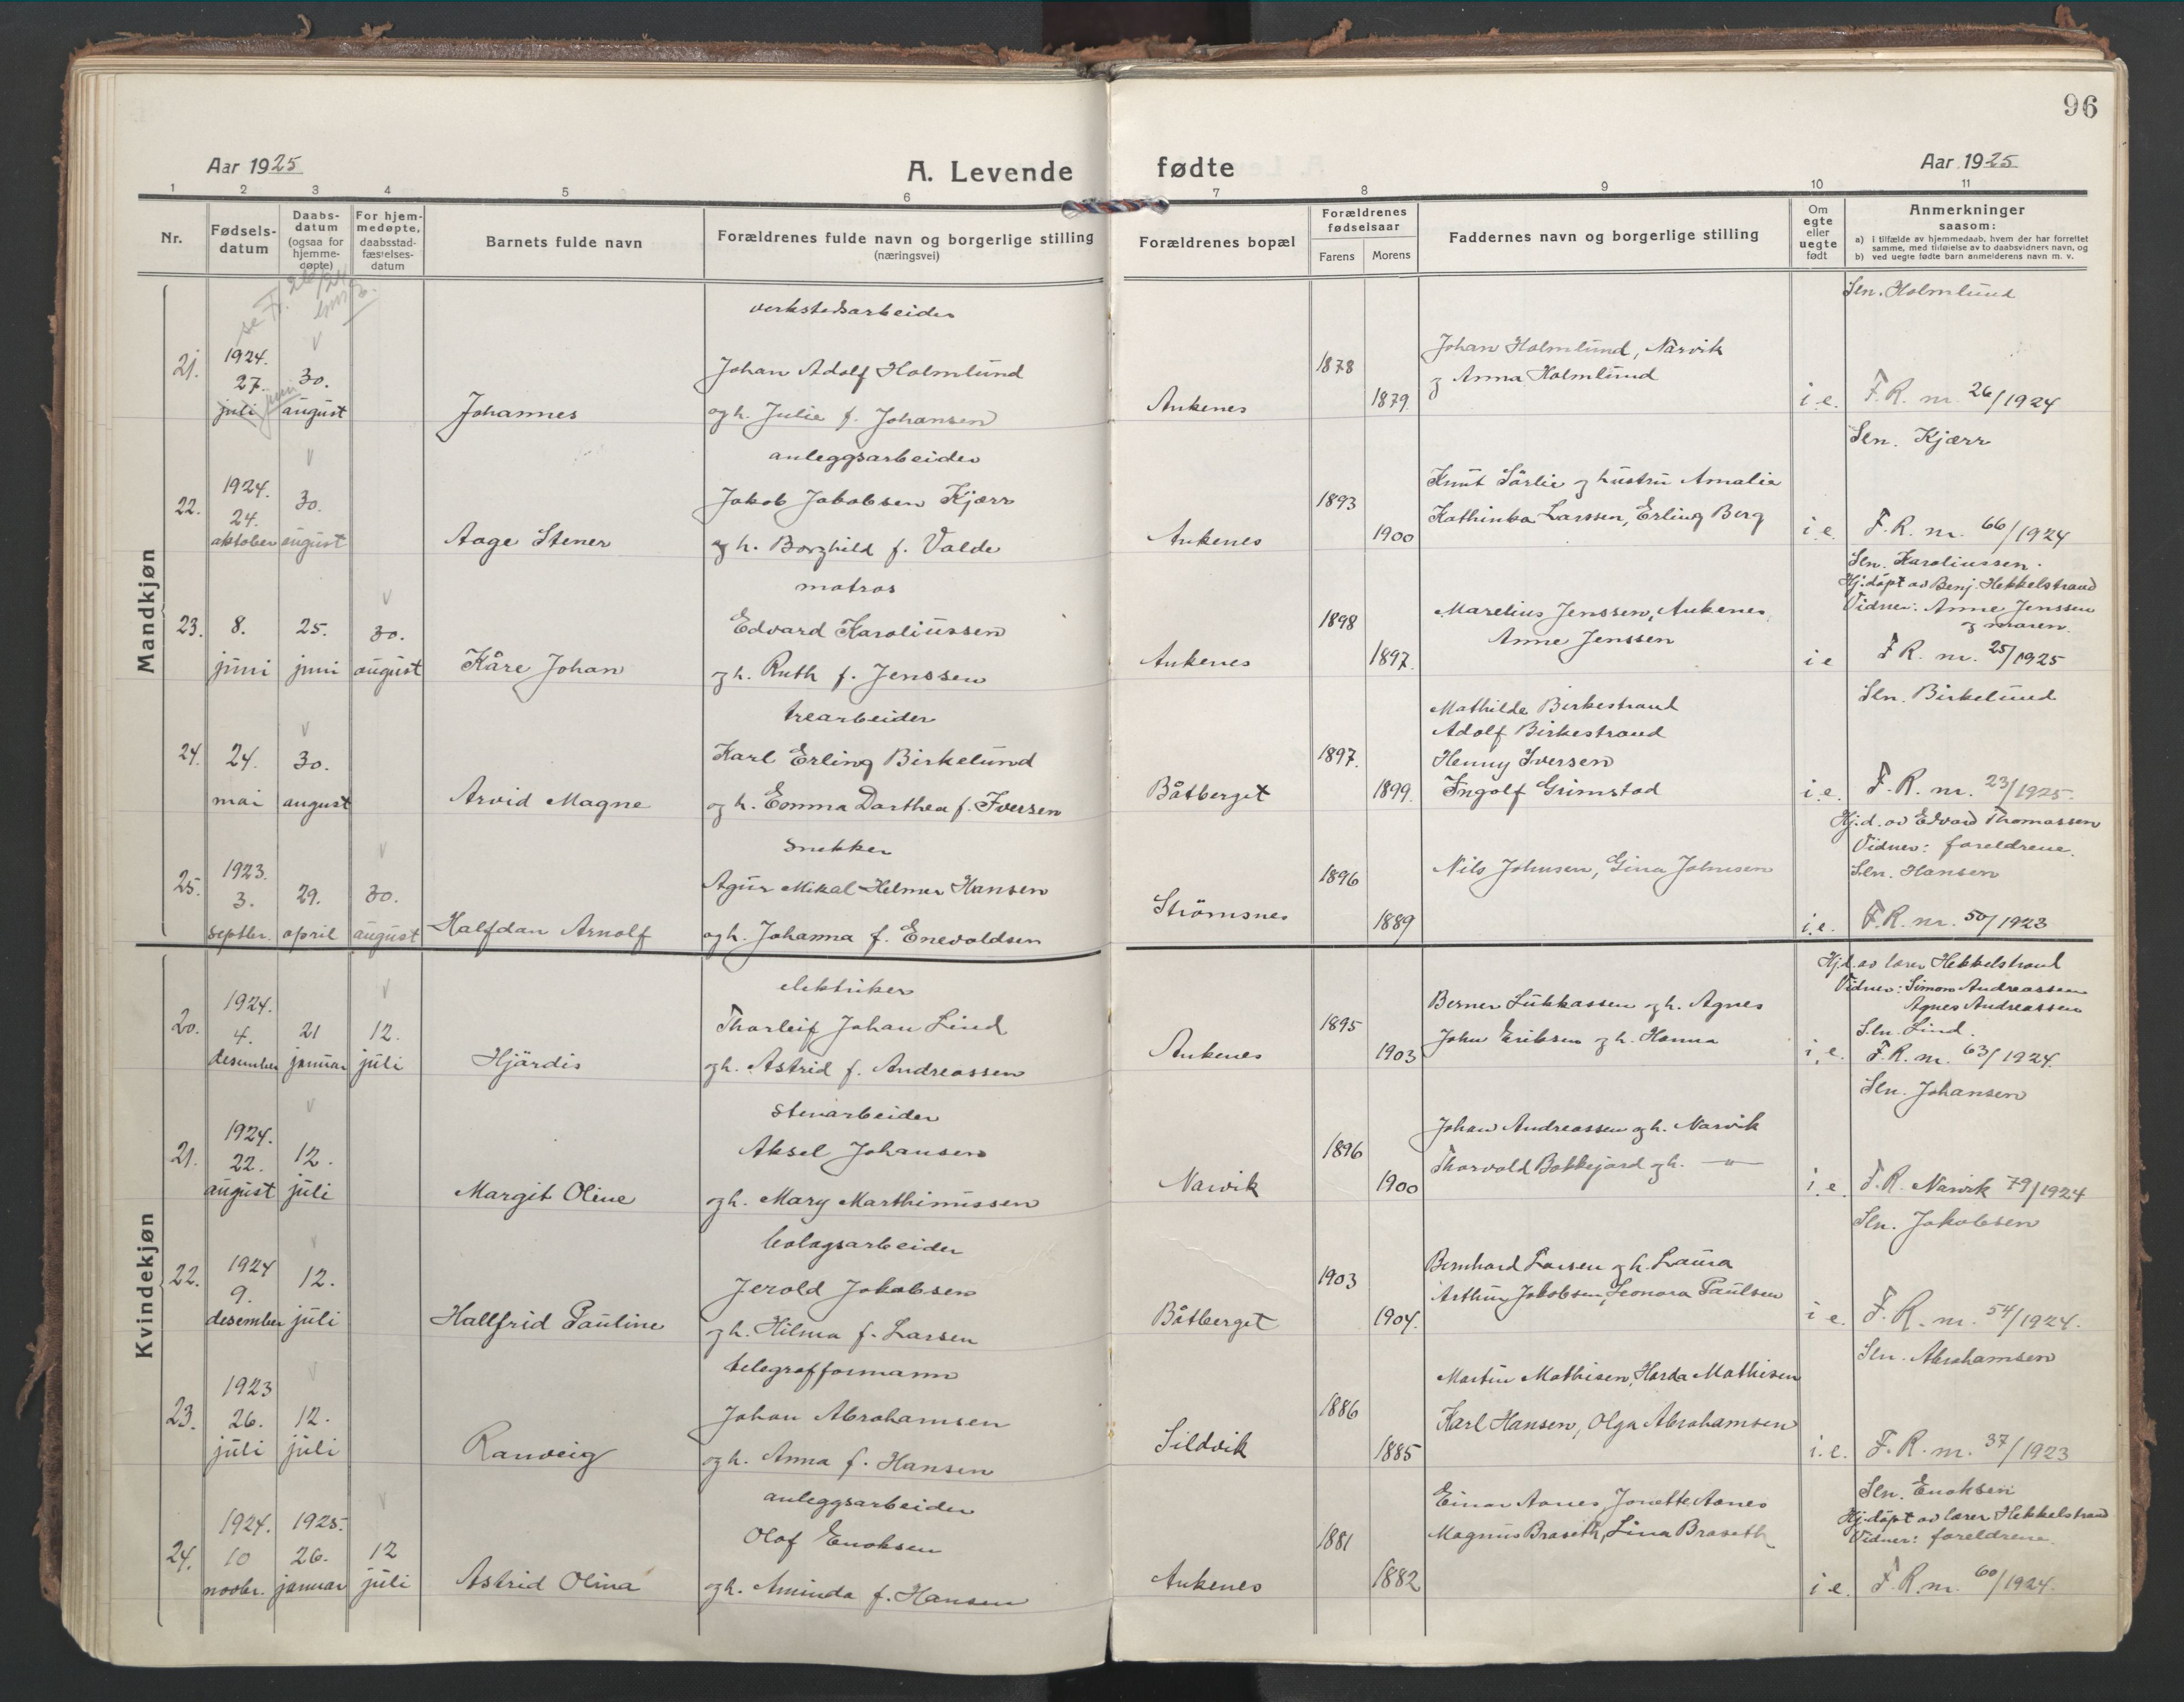 96
Aar 1925
A. Levende fødte
Aar 1925
1 2 3 4 5 6 7 8 9 10 11
Nr.
Fødsels-
datum
Daabs-
datum
(ogsaa for
hjemme-
døpte)
For hjem-
medøpte,
daabsstad-
fæstelses-
datum
Barnets fulde navn
Forældrenes fulde navn og borgerlige stilling
(næringsvei)
Forældrenes bopæl
Forældrenes
fødselsaar
Farens Morens
Faddernes navn og borgerlige stilling
Om
egte
eller
uegte
født
Anmerkninger
saasom:
a) i tilfælde av hjemmedaab, hvem der har forrettet
samme, med tilføielse av to daabsvidners navn, og
b) ved uegte fødte barn anmelderens navn m. v.
Mandkjøn
se F. 26/24
21.
1924.
27.
juli juni
30.
august
Johannes
verkstedsarbeider
Johan Adolf Holmlund
og h. Julie f. Johansen
Ankenes
1878
1879.
Johan Holmlund, Narvik
og Anna Holmlund
i.e.
Sln. Holmlund
F.R. nr. 26/1924
22.
1924.
24.
oktober
30.
august
Aage Stener
anleggsarbeider
Jakob Jakobsen Kjærr
og h. Borghild f. Valde
Ankenes
1893
1900
Knut Sörlie og hustru Amalie
Kathinka Larssen, Erling Berg
i.e.
Sln. Kjærr
F.R. nr. 66/1924
23.
8.
juni
25.
juni
30.
august
Kåre Johan
matros
Edvard Karoliussen
og h. Ruth f. Jenssen
Ankenes
1898
1897.
Marelius Jenssen, Ankenes
Anne Jenssen
i e
Sln. Karoliussen.
Hj.döpt av Benj. Hekkelstrand
Vidner: Anne Jenssen
og maren.
F R. nr. 25/1925
24.
24.
mai
30.
august
Arvid Magne
trearbeider
Karl Erling Birkelund
og h. Emma Dorthea f. Iversen
Båtberget
1897.
1899.
Mathilde Birkestrand
Adolf Birkestrand
Henny Iversen
Ingolf Grimstad
i.e.
Sln. Birkelund
F.R. nr. 23/1925.
25.
1923.
3.
septbr.
29.
april
30.
august
Halfdan Arnolf
Snekker
Agur Mikal Helmer Hansen
og h. Johanna f. Enevoldsen
Strömsnes
1896
1889
Nils Johnsen, Gina Johnsen
i.e.
Hj.d. av Edvard Thomassen
Vidner: foreldrene.
Sln. Hansen
F.R. nr. 50/1923
Kvindekjøn
20.
1924.
4.
desember
21
januar
12.
juli
Hjördis
elektriker
Thorleif Johan Lind
og h. Astrid f. Andreassen
Ankenes
1895
1903
Berner Lukkassen og h. Agnes
John Eriksen og h. Hanna
i.e.
Hj.d. av lærer Hekkelstrand
Vidner: Simon Andreassen
Agnes Andreassen
Sln. Lind.
F.R. nr. 63/1924.
21.
1924.
22.
august
12.
juli
Margit Oline
Stenarbeider
Aksel Johansen
og h. Mary Marthinussen
Narvik
1896
1900
Johan Andreassen og h. Narvik
Thorvald Bokkejord og h. —"—
i.e.
Sln. Johansen
F.R. Narvik 79/1924
22.
1924
9.
desember
12.
juli
Hallfrid Pauline
bolagsarbeider
Jerold Jakobsen
og h. Hilma f. Larsen
Båtberget
1903
1904.
Bernhard Larsen og h. Laura
Arthur Jakobsen, Leonora Paulsen
i e.
Sln. Jakobsen
F.R. nr. 54/1924.
23.
1923
26.
juli
12.
juli
Ranveig
telegrafformann
Johan Abrahamsen
og h. Anna f. Hansen
Sildvik
1886
1885
Martin Mathisen, Harda Mathisen
Karl Hansen, Olga Abrahamsen
i.e.
Sln. Abrahamsen
F.R. nr. 37/1923
24.
1924.
10
novbr.
1925.
26.
januar
12
juli
Astrid Olina
anleggsarbeider
Olaf Enoksen
og h. Aminda f. Hansen
Ankenes
1881
1882
Einar Aanes, Jonette Aanes
Magnus Braseth, Lina Braseth
i e.
Sln. Enoksen
Hj.döpt av lærer Hekkelstrand
Vidner: foreldrene.
F.R. nr. 60/1924.